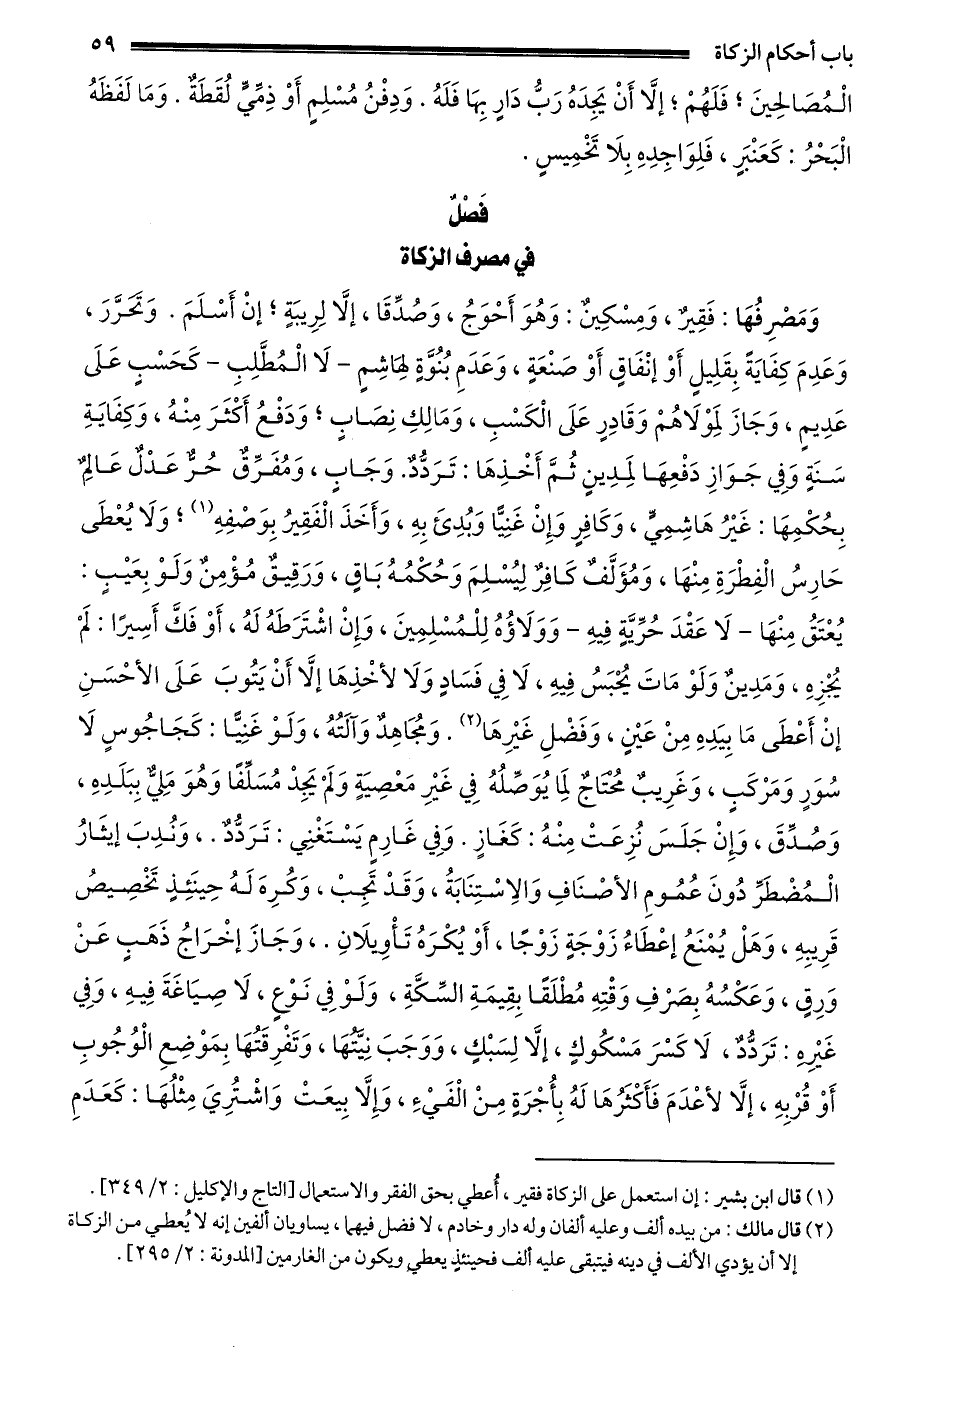 باب أحكام الزكاة ٥٩
الْمُصَالِحِينَ ؛ فَلَهُمْ ؛ إلَّا أَنْ يَجِدَهُ رَبُّ دَارٍ بِهَا فَلَهُ . وَدِفْنُ مُسْلِمٍ أَوْ ذِمِّيٍّ لُقَطَةٌ . وَمَا لَفَظَهُ
الْبَحْرُ : كَعَنْبَرٍ ، فَلِوَاجِدِهِ بِلَا تَخْمِيسٍ .
فَصْلٌ
في مصرف الزكاة
وَمَصْرِفُهَا : فَقِيرٌ ، وَمِسْكِينٌ : وَهُوَ أَحْوَجُ ، وَصُدِّقَا ، إلَّا لِرِيبَةٍ ؛ إنْ أَسْلَمَ . وَتَحَرَّرَ ،
وَعَدِمَ كِفَايَةً بِقَلِيلٍ أَوْ إنْفَاقٍ أَوْ صَنْعَةٍ ، وَعَدَمِ بُنُوَّةٍ لِهَاشِمٍ – لَا الْمُطَّلِبِ – كَحَسْبٍ عَلَى
عَدِيمٍ ، وَجَازَ لِمَوْلَاهُمْ وَقَادِرٍ عَلَى الْكَسْبِ ، وَمَالِكِ نِصَابٍ ؛ وَدَفْعُ أَكْثَرَ مِنْهُ ، وَكِفَايَةِ
سَنَةٍ وَفِي جَوَازِ دَفْعِهَا لِمَدِينٍ ثُمَّ أَخْذِهَا : تَرَدُّدٌ. وَجَابٍ ، وَمُفَرِّقٌ حُرٌّ عَدْلٌ عَالِمٌ
بِحُكْمِهَا : غَيْرُ هَاشِمِيٍّ ، وَكَافِرٍ وَإِنْ غَنِيًّا وَبُدِئَ بِهِ ، وَأَخَذَ الْفَقِيرُ بِوَصْفِهِ(١) ؛ وَلَا يُعْطَى
حَارِسُ الْفِطْرَةِ مِنْهَا ، وَمُؤَلَّفٌ كَافِرٌ لِيُسْلِمَ وَحُكْمُهُ بَاقٍ ، وَرَقِيقٌ مُؤْمِنٌ وَلَوْ بِعَيْبٍ :
يُعْتَقُ مِنْهَا – لَا عَقْدَ حُرِّيَّةٍ فِيهِ – وَوَلَاؤُهُ لِلْمُسْلِمِينَ ، وَإِنْ اشْتَرَطَهُ لَهُ ، أَوْ فَكَّ أَسِيرًا : لَمْ
يُجْزِهِ ، وَمَدِينٌ وَلَوْ مَاتَ يُحْبَسُ فِيهِ ، لَا فِي فَسَادٍ وَلَا لأَخْذِهَا إلَّا أَنْ يَتُوبَ عَلَى الأَحْسَنِ
إنْ أَعْطَى مَا بِيَدِهِ مِنْ عَيْنٍ ، وَفَضْلِ غَيْرِهَا(٢) . وَمُجَاهِدٌ وَآلَتُهُ ، وَلَوْ غَنِيًّا : كَجَاسُوسٍ لَا
سُورٍ وَمَرْكَبٍ ، وَغَرِيبٌ مُحْتَاجٌ لِمَا يُوَصِّلُهُ فِي غَيْرِ مَعْصِيَةٍ وَلَمْ يَجِدْ مُسَلِّفًا وَهُوَ مَلِيٌّ بِبَلَدِهِ ،
وَصُدِّقَ ، وَإِنْ جَلَسَ نُزِعَتْ مِنْهُ : كَغَازٍ . وَفِي غَارِمٍ يَسْتَغْنِي : تَرَدُّدٌ . ، وَنُدِبَ إيثَارُ
الْمُضْطَرِّ دُونَ عُمُومِ الأَصْنَافِ وَالِاسْتِنَابَةُ ، وَقَدْ تَجِبُ ، وَكُرِهَ لَهُ حِينَئِذٍ تَخْصِيصُ
قَرِيبِهِ ، وَهَلْ يُمْنَعُ إعْطَاءُ زَوْجَةٍ زَوْجًا ، أَوْ يُكْرَهُ تَأْوِيلَانِ . ، وَجَازَ إخْرَاجُ ذَهَبٍ عَنْ
وَرِقٍ ، وَعَكْسُهُ بِصَرْفِ وَقْتِهِ مُطْلَقًا بِقِيمَةِ السِّكَّةِ ، وَلَوْ فِي نَوْعٍ ، لَا صِيَاغَةَ فِيهِ ، وَفِي
غَيْرِهِ : تَرَدُّدٌ ، لَا كَسْرَ مَسْكُوكٍ ، إلَّا لِسَبْكٍ ، وَوَجَبَ نِيَّتُهَا ، وَتَفْرِقَتُهَا بِمَوْضِعِ الْوُجُوبِ
أَوْ قُرْبِهِ ، إلَّا لأَعْدَمَ فَأَكْثَرُهَا لَهُ بِأُجْرَةٍ مِنْ الْفَيْءِ ، وَإِلَّا بِيعَتْ وَاشْتُرِيَ مِثْلُهَا : كَعَدَمِ
(١) قال ابن بشير : إن استعمل على الزكاة فقير ، أُعطي بحق الفقر والاستعمال [التاج والإكليل : ٢/ ٣٤٩] .
(٢) قال مالك : من بيده ألف وعليه ألفان وله دار وخادم ، لا فضل فيهما ، يساويان ألفين إنه لا يُعطي من الزكاة
إلا أن يؤدي الألف في دينه فيتبقى عليه ألف فحينئذٍ يعطي ويكون من الغارمين [المدونة : ٢/ ٢٩٥] .